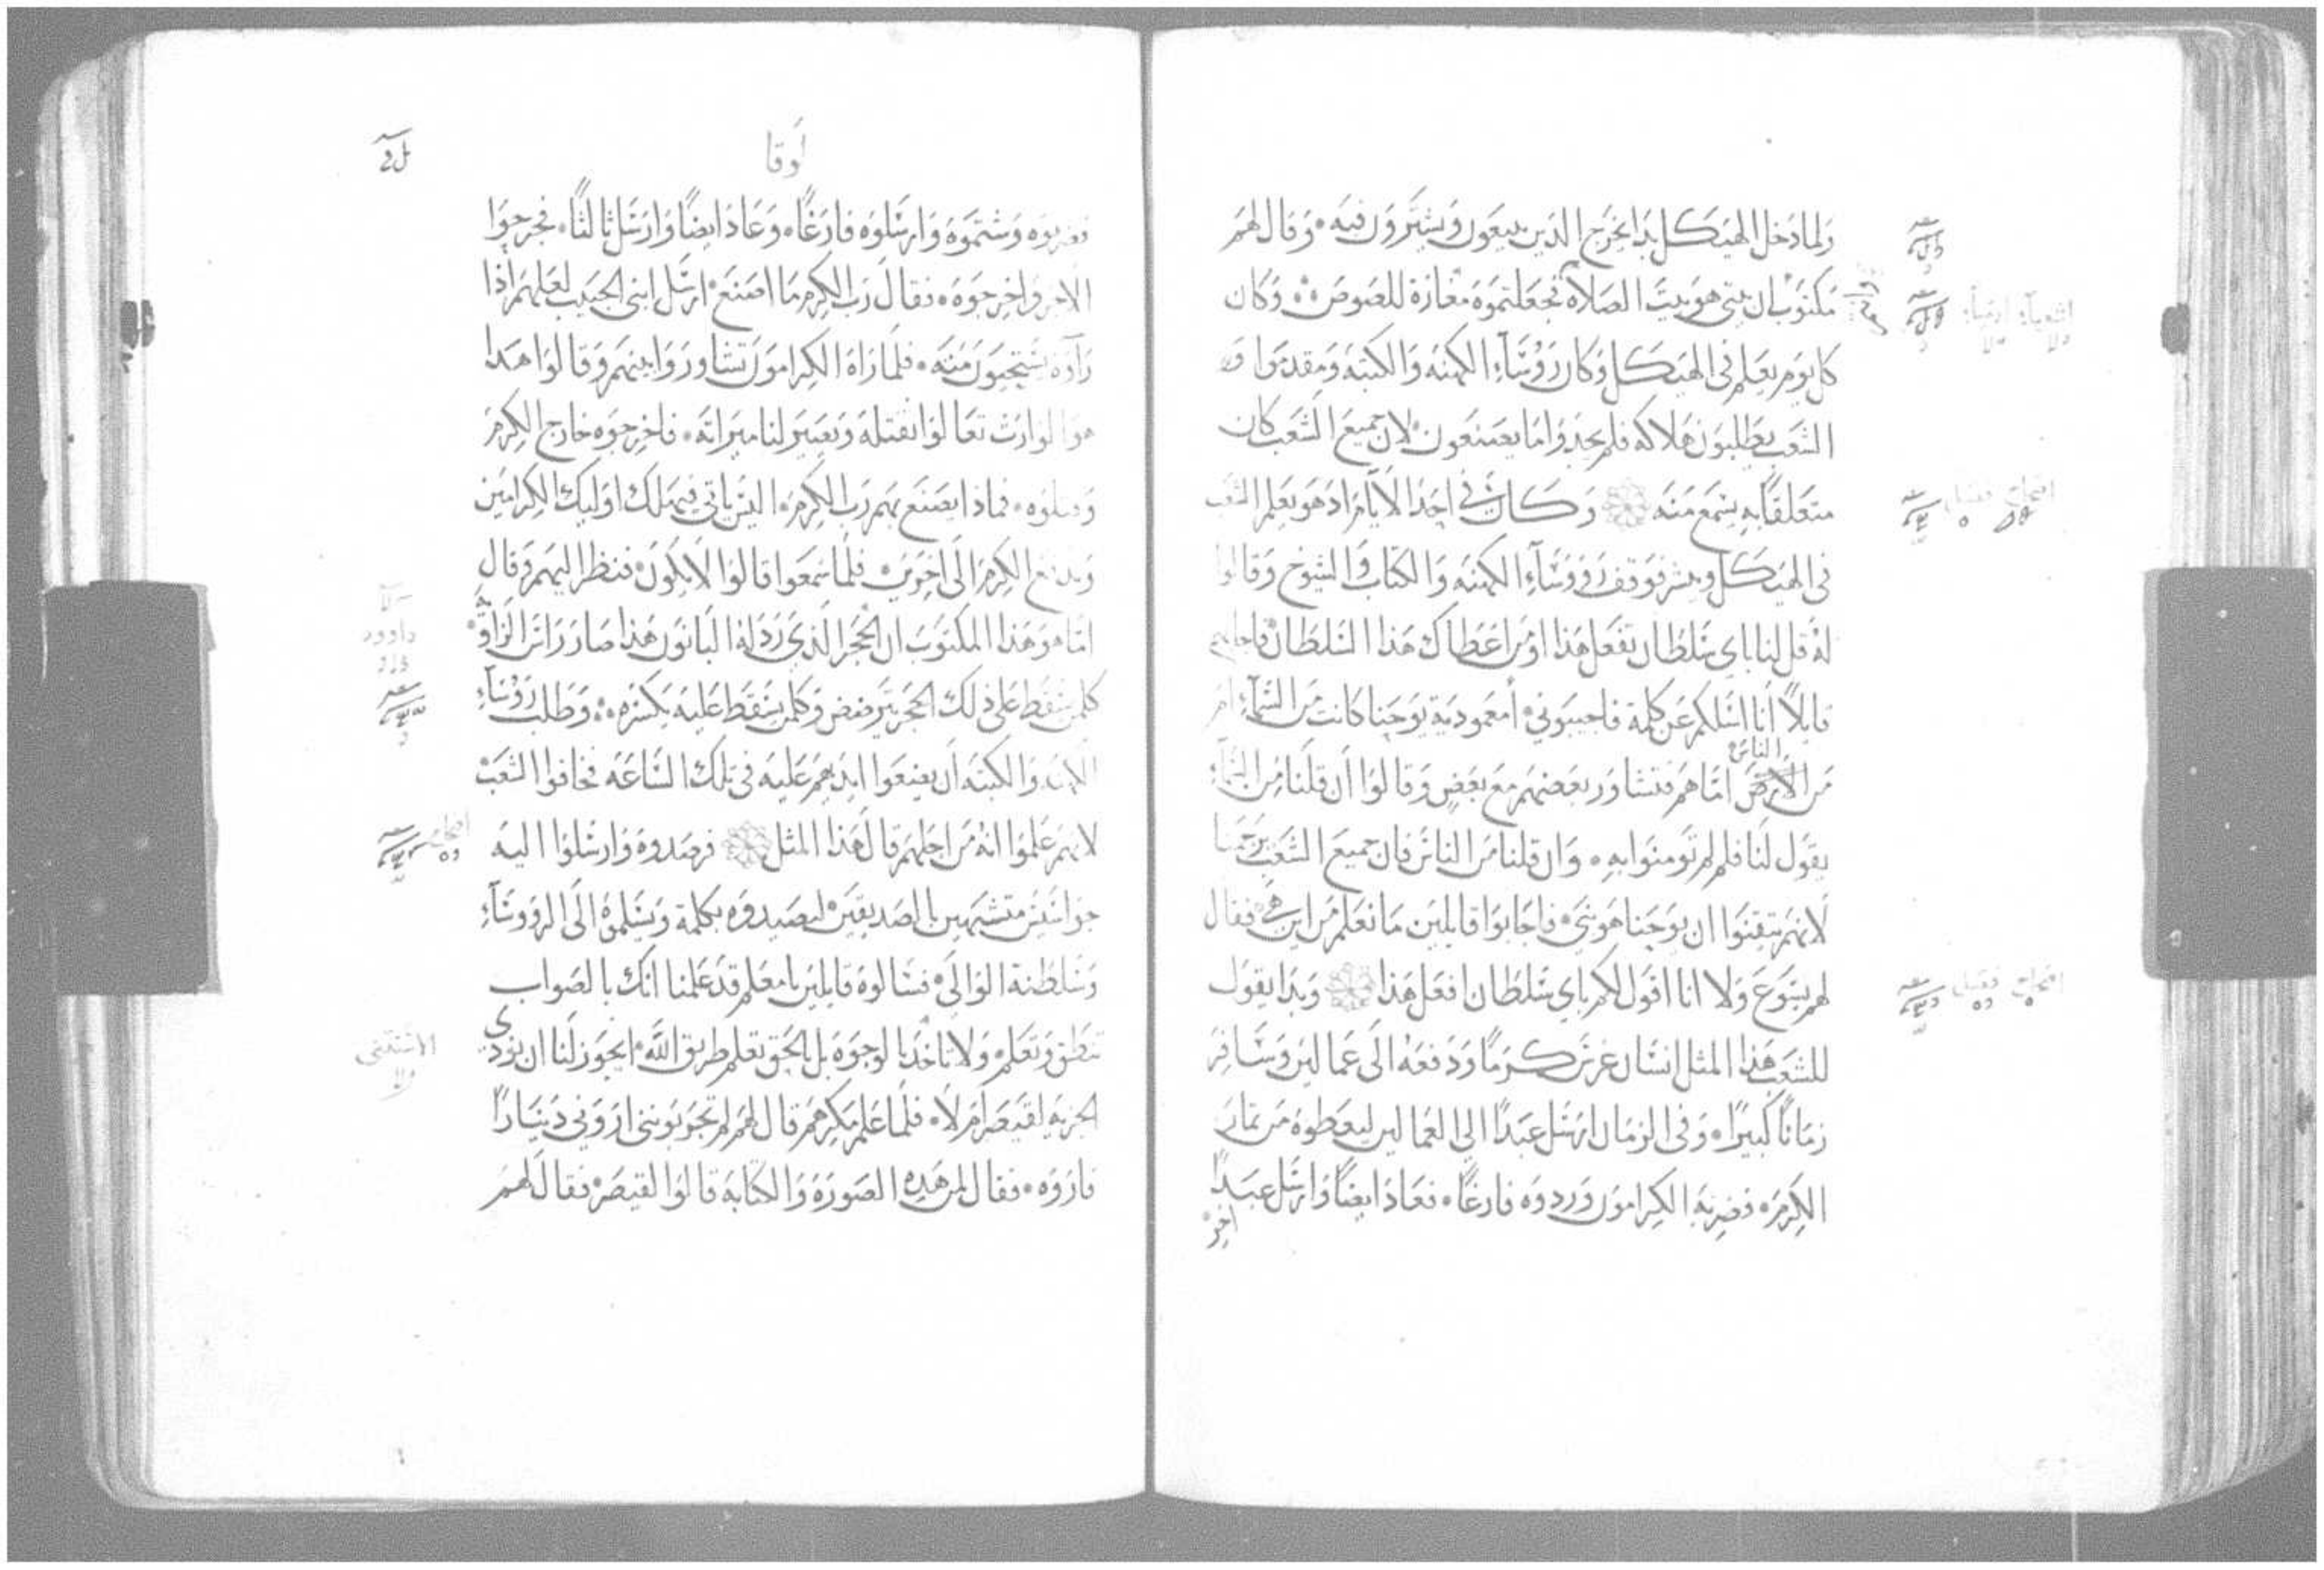 ولما دخل الهيكل بدا يخرج الذين يبيعون ويشترون فيه. وقال لهم
مكتوب ان بيتي هو بيت الصلاة فجعلتموه مغارة للصوص. وكان
كل يوم يعلم في الهيكل وكان رؤسآء الكهنه والكتبه ومقدموا
الشعب يطلبون هلاكه فلم يجدوا ما يصنعون لان جميع الشعب كان
متعلقا به يسمع منه وكان في احد الايام اذ هو يعلم الشعب
في الهيكل ويبشر فوقف روؤسآء الكهنه والكتاب والشيوخ وقالوا
له قل لنا باي سلطان تفعل هذا او من اعطاك هذا السلطان فاجابهم
قايلا انا اسلكم عن كلمة فاجيبوني أمعمودية يوحنا كانت من السمآء ام
الناس
من الارض اما هم فتشاور بعضهم مع بعض وقالوا ان قلنا من السمآء
يقول لنا فلم لم تومنوا به. وان قلنا من الناس فان جميع الشعب يرجمنا
لانهم تيقنوا ان يوحنا هو نبي فاجابوا قايلين ما نعلم من اين هي فقال
لهم يسوع ولا انا اقول لكم باي سلطان افعل هذا وبدا يقول
للشعب هذا المثل انسان غرس كرما ودفعه الى عمالين وسافر
زمانا كبيرا. وفي الزمان ارسل عبدا الي العمالين ليعطوه من ثمار
الكرم. فضربه الكرامون وردوه فارغا. فعاد ايضا وارسل عبدا
اخر
لوقا
فضربوه وشتموه وارسلوه فارغا. وعاد ايضا وارسل ثالثا. فجرحوا
الاخر واخرجوه. فقال رب الكرم ما اصنع ارسل ابني الحبيب لعلهم اذا
رآوه يستحيون منه. فلما راه الكرامون تشاوروا بينهم وقالوا هذا
هو الوارث تعالوا نقتله ويصير لنا ميراثه. فاخرجوه خارج الكرم
وقتلوه. فماذا يصنع بهم رب الكرم. اليس ياتي فيهلك اوليك الكرامين
ويدفع الكرم الى اخرين فلما سمعوا قالوا لا يكون فنظر اليهم وقال
اما هو هذا المكتوب ان الحجر الذي ردله البانون هذا صار راس الزاوية
كلمن سقط على ذلك الحجر يترضض وكلمن سقط عليه يكسره. وطلب رؤسآء
الكهنه والكتبه ان يضعوا ايديهم عليه في تلك الساعه فخافوا الشعب
لانهم علموا انه من اجلهم قال هذا المثل فرصدوه وارسلوا اليه
جواسيس متشبهين بالصديقين ليصيدوه بكلمة ويسلموه الى الروؤسآء
وسلطنة الوالى فسالوه قايلين يا معلم قد علمنا انك بالصواب
تنطق وتعلم ولا تاخد بالوجوه بل بالحق تعلم طريق الله ايجوز لنا ان نودي
الجزيه لقيصر ام لا. فلما علم مكرهم قال لهم لم تجربونني اروني دينارا
فاروه. فقال لمن هذه الصورة والكتابة قالوا لقيصر فقال لهم
داوود